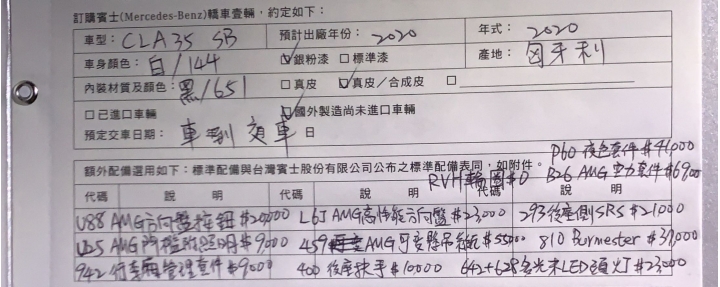 訂購賓士(Mercedes-Benz)轎車壹輛，約定如下：
車型：CLA35 SB 預計出廠年份：2020 年式：2020
車身顏色：白/144 ☑銀粉漆 □標準漆 產地：匈牙利
內裝材質及顏色：黑/651 □真皮 ☑真皮/合成皮 □
□已進口車輛 ☑國外製造尚未進口車輛
預定交車日期：車到交車 日
P60 夜色套件 $41,000
額外配備選用如下：標準配備與台灣賓士股份有限公司公布之標準配備表同，如附件。
RVH輪圈$0 B26 AMG空力套件$69,000
代碼 說 明 代碼 說 明 代碼 說 明
U88 AMG方向盤按鈕$20,000 L6J AMG高性能方向盤$23,000 293後座側SRS $21,000
U25 AMG門檻飾照明$9,000 459 AMG可變懸吊系統$55,000 810 Burmester $37,000
942 行李廂管理套件$9,000 400 後座扶手$10,000 642+628多光束LED頭灯$23,000